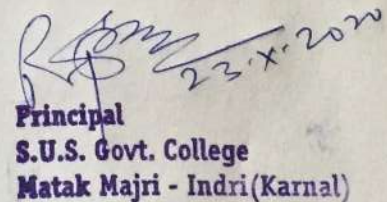 23.X.2020
Principal
S.U.S. Govt. College
Matak Majri - Indri(Karnal)